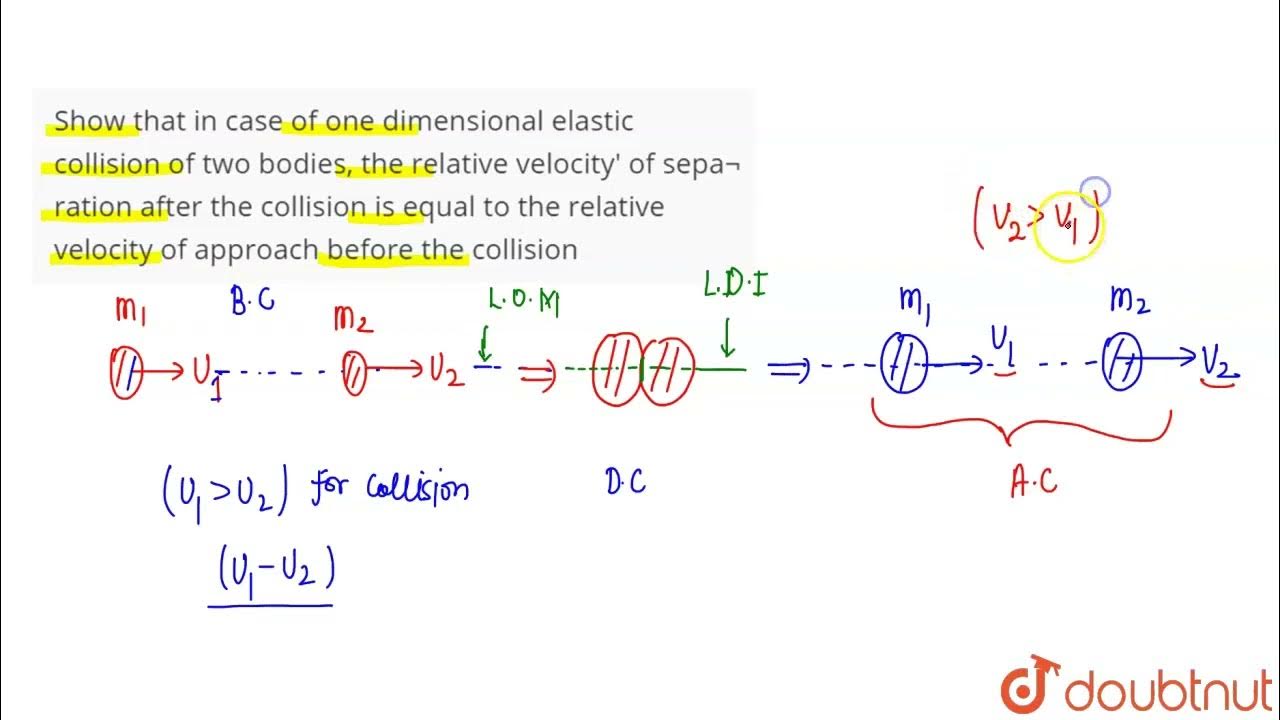 Show that in case of one dimensional elastic
collision of two bodies, the relative velocity' of sepa¬
ration after the collision is equal to the relative
velocity of approach before the collision
(V₂>V₁)
m₁ B.C m₂ L.O.M L.D.I m₁ m₂
U₁ U₂ ⇒ ⇒ V₁ V₂
(U₁>U₂) for collision D.C A.C
(U₁-U₂)
doubtnut